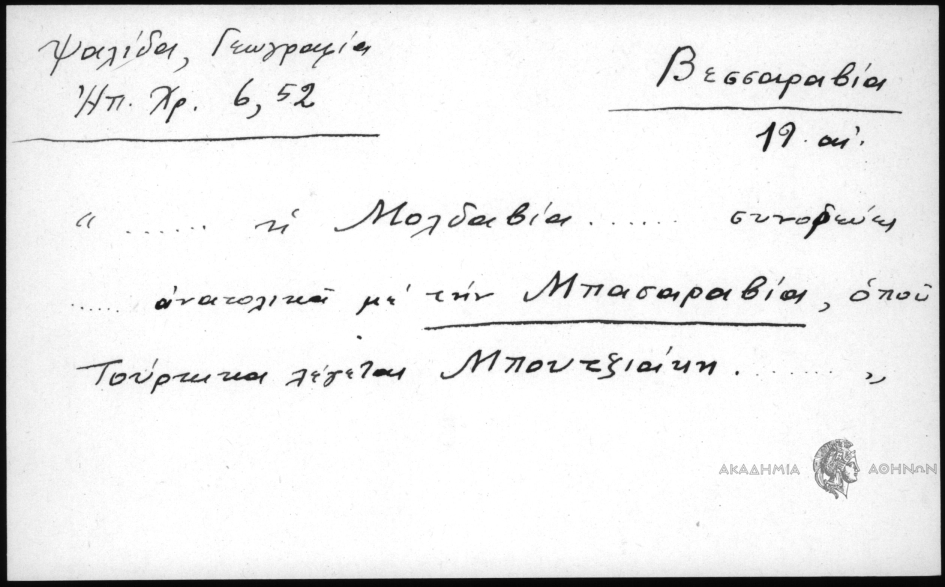 Ψαλίδα, Γεωγραφία
Ἠπ. Χρ. 6, 52
Βεσσαραβία
19. αἰ.
" ...... ἡ Μολδαβία ...... συνοδεύει
..... ἀνατολικὰ μὲ τὴν Μπασαραβία, ὁποῦ
Τούρκικα λέγεται Μπουτζιάκη. ....... "
ΑΚΑΔΗΜΙΑ ΑΘΗΝΩΝ